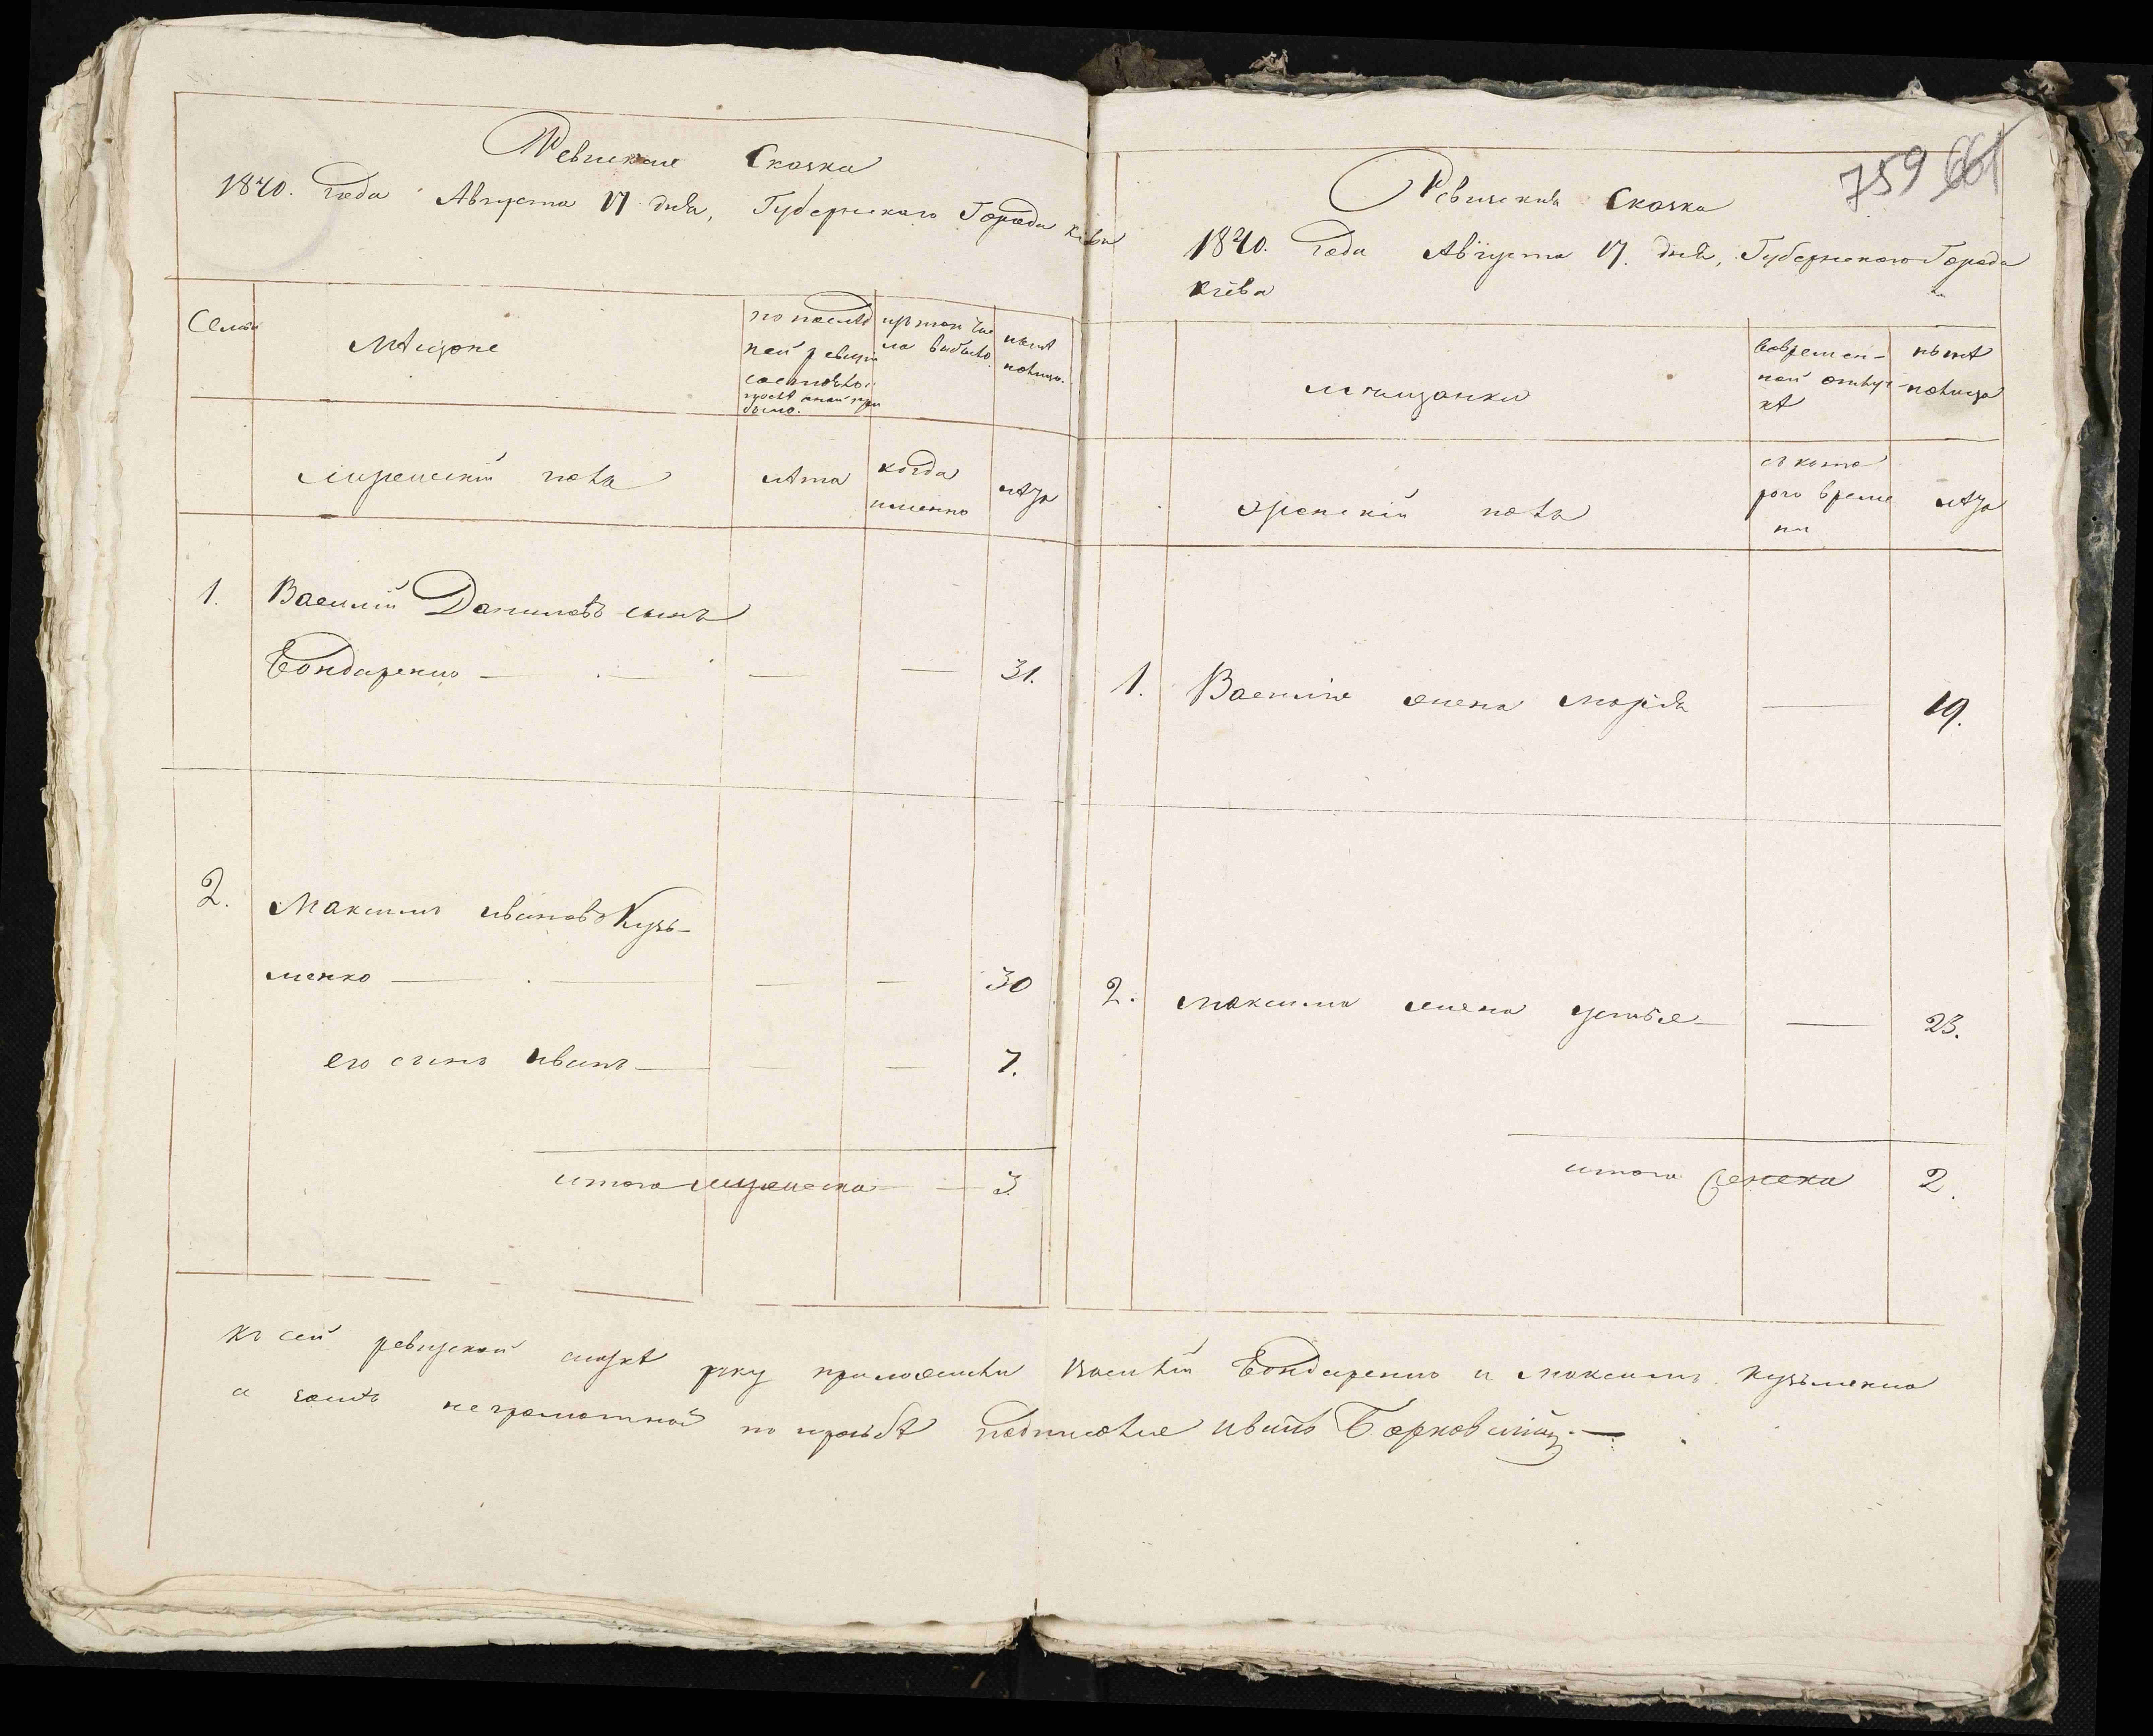 Ревизкаие Сказка
1840. года Августа 17 дня, Губернскаго Города Киева
Семьи
мѣщоне
по послѣд
ней ревизіи
состояло
и послѣ оной при
было.
из того чис
ла выбыло
нынѣ
нолицо.
мужескій полъ
лѣта
когда
именно
лѣта
1. Василій Даниловъ сынъ
Бондаренко — — — — 31.
2. Максимъ ивановъ Кузь-
менко — — — — 30
его сынъ иванъ — — — 7.
итого мужеска — — 3
759 661
Ревизская Сказка
1840. Года Августа 17. дня, Губернскаго Города
Кіева
мѣщанки
вовремен-
ной отлуч-
кѣ
нынѣ
нолицо
женскій полъ
съ кото
рого време
ни
лѣта
1. Василіе жена марія — 19.
2. максима жена устье — — 23.
итого женска 2.
къ сей ревизкой сказкѣ руку приложили Василій Бондаренко и максимъ Кузьменко
а неграмотной по прозьбѣ подписолся иванъ Борковскій. —